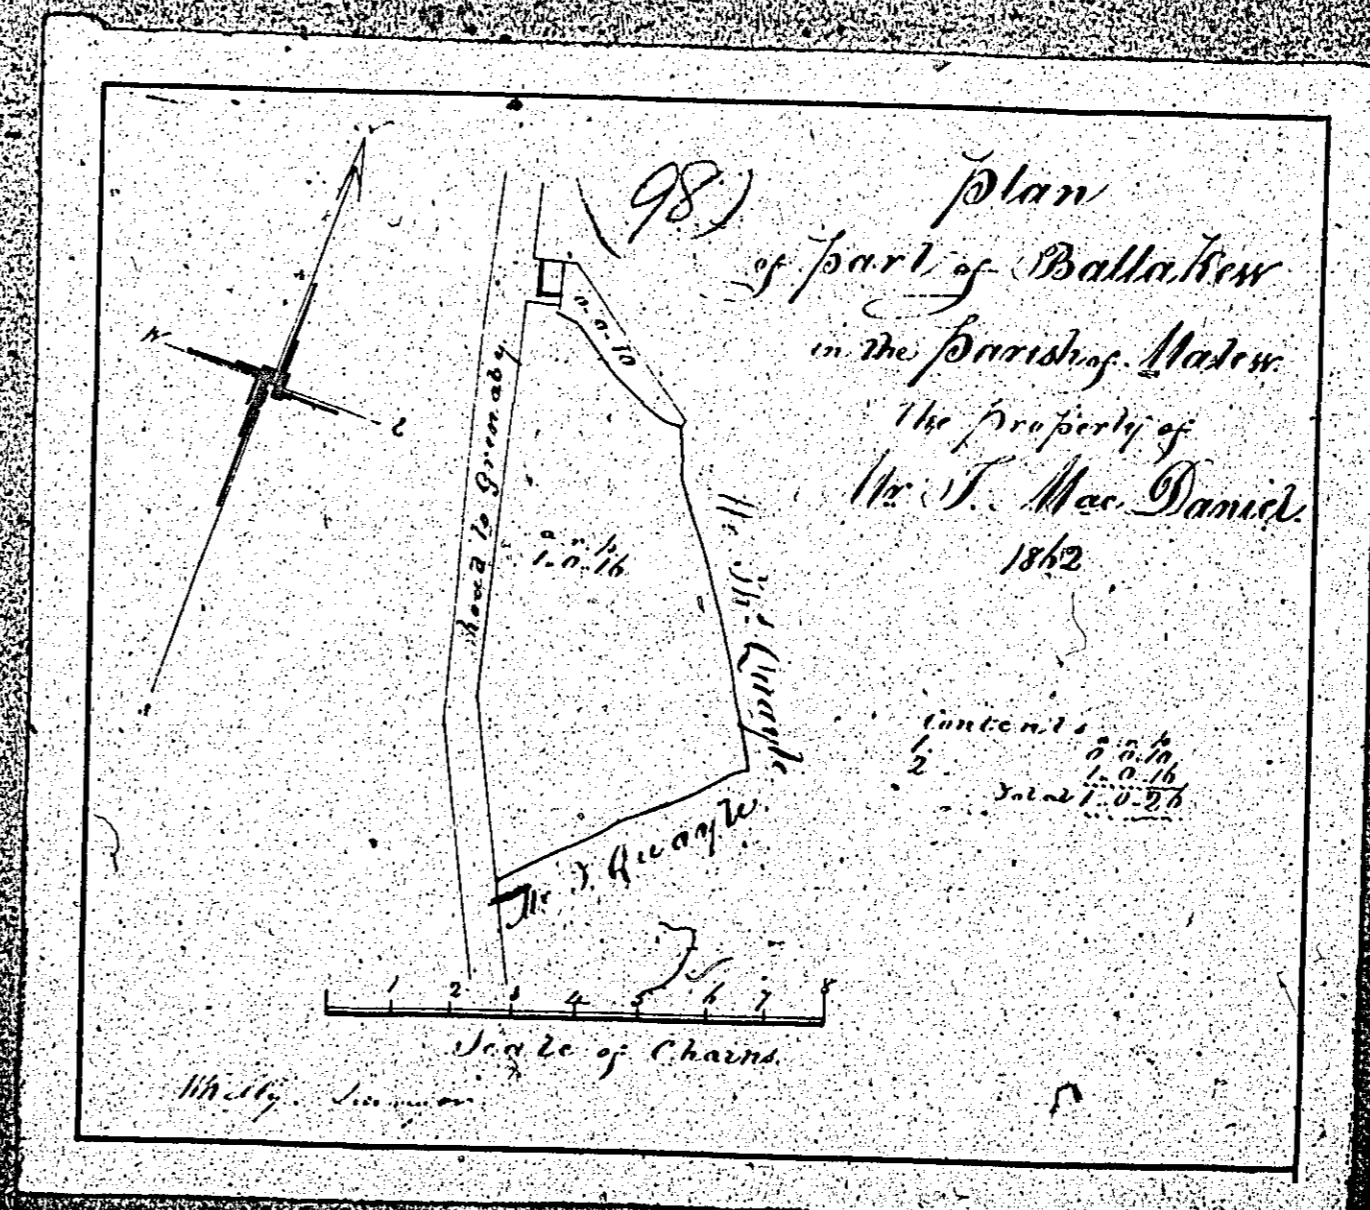 98)
Plan
of part of BallaKew
in the Parish of Malew
The property of
Mr T. Mac Daniel.
1862
N
W
E
S
0-0-10
Road to Grenaby
a r p
1-0-16
Mr Thos Quayle
Mr T. Quayle.
Contents
a r p
1 0 0 10
2 1 0 16
Total 1-0-26
1 2 3 4 5 6 7 8
Scale of Chains.
Surveyor